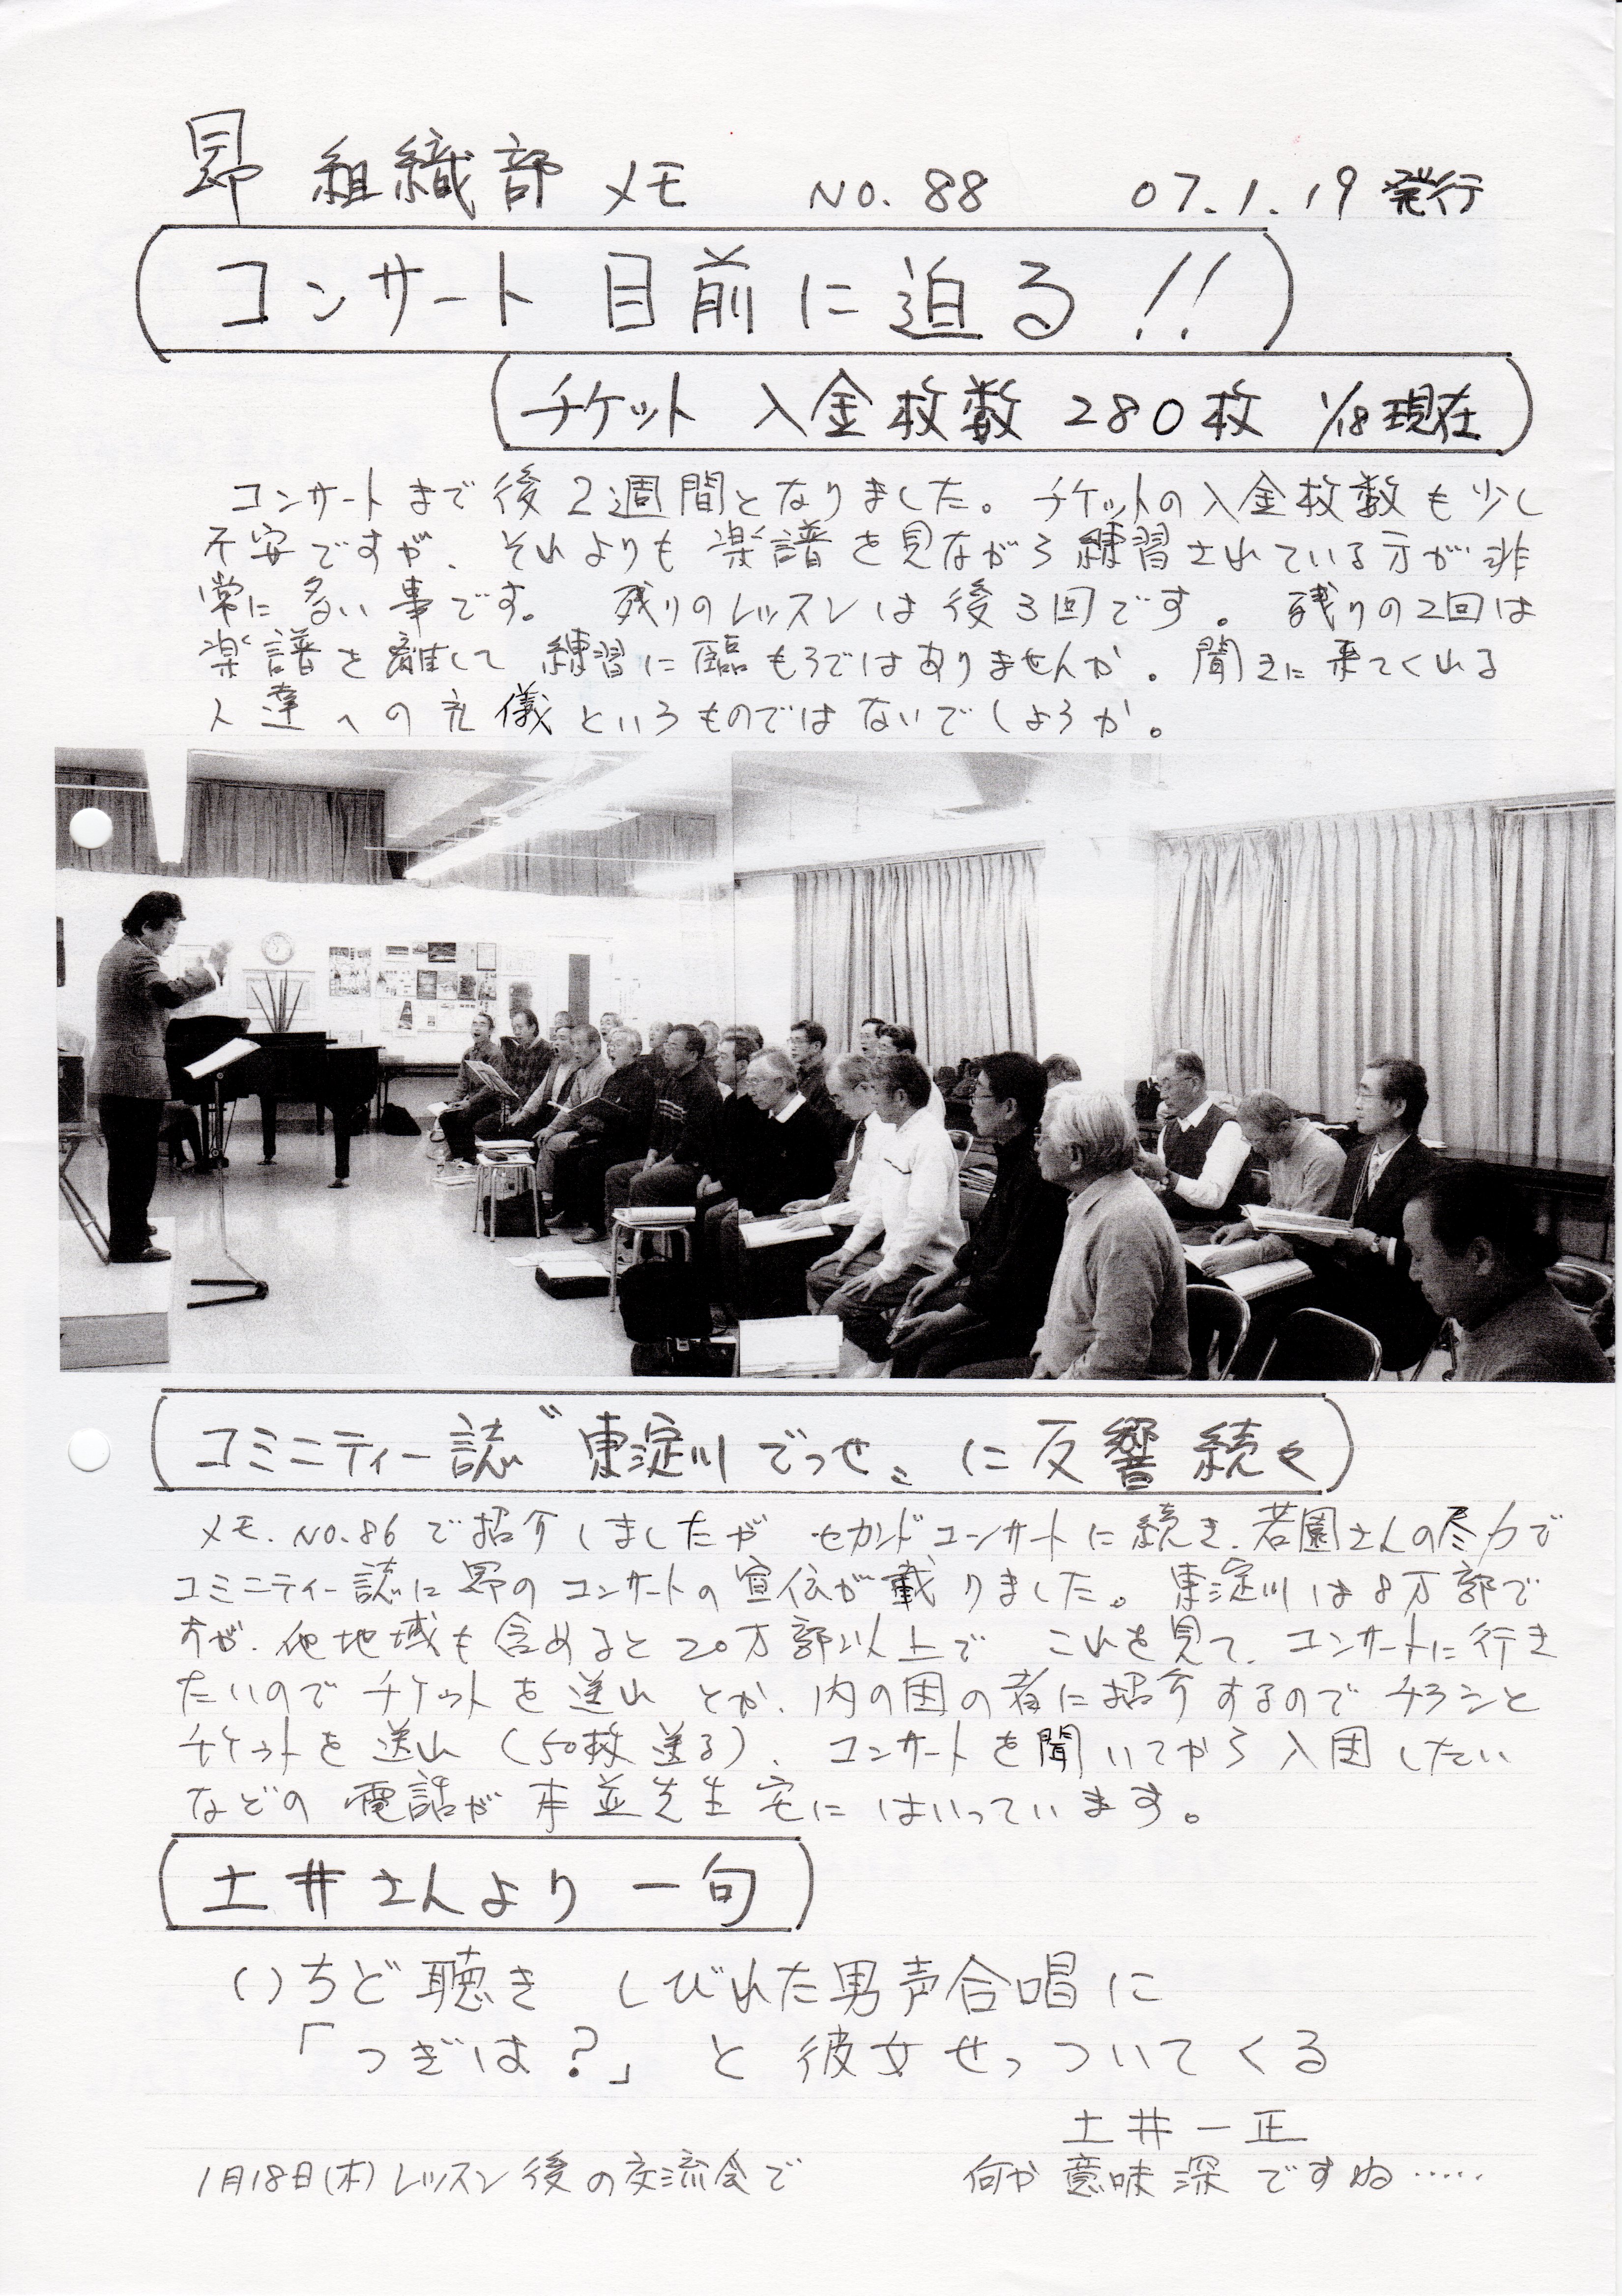 昴 組織部 メモ NO. 88 07.1.19 発行
コンサート 目前に迫る!!
チケット 入金枚数 280枚 1/18現在
コンサートまで後2週間となりました。チケットの入金枚数も少し
不安ですが、それよりも楽譜を見ながら練習されている方が非
常に多い事です。 残りのレッスンは後3回です。 残りの2回は
楽譜を離して練習に臨もうではありませんか。聞きに来てくれる
人達への礼儀というものではないでしょうか。
コミニティー誌〝東淀川でっせ〟に反響続々
メモ.NO.86で紹介しましたが セカンドコンサートに続き、若園さんの尽力で
コミニティー誌に昴のコンサートの宣伝が載りました。東淀川は8万部で
すが、他地域も含めると20万部以上で これを見て、コンサートに行き
たいのでチケットを送れ とか、内の団の者に紹介するのでチラシと
チケットを送れ(50枚送る)、コンサートを聞いてから入団したい
などの電話が本並先生宅にはいっています。
土井さんより一句
いちど聴き しびれた男声合唱に
「つぎは?」と彼女せっついてくる
土井一正
1月18日(木)レッスン後の交流会で 何か意味深ですね……